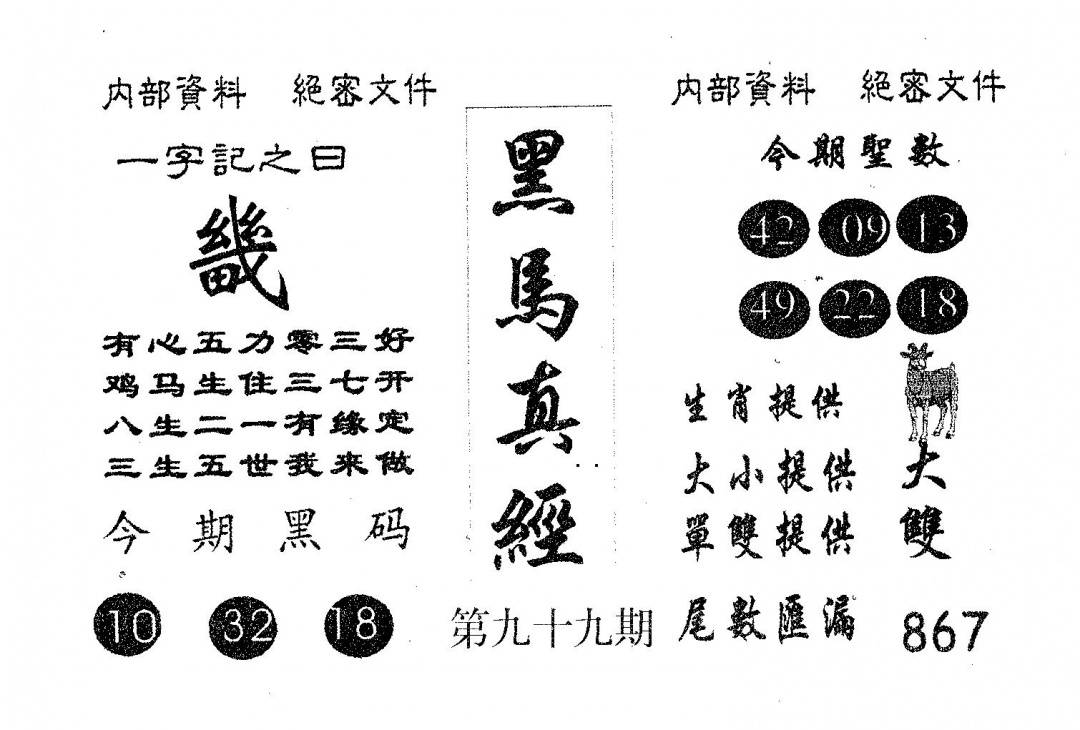 内部資料 絕密文件
一字記之曰
畿
有心五力零三好
鸡马生住三七开
八生二一有缘定
三生五世我来做
今期黑码
10 32 18
黑馬真經
第九十九期
内部資料 絕密文件
今期聖數
42 09 13
49 22 18
生肖提供
大小提供 大
單雙提供 雙
尾數匯漏 867